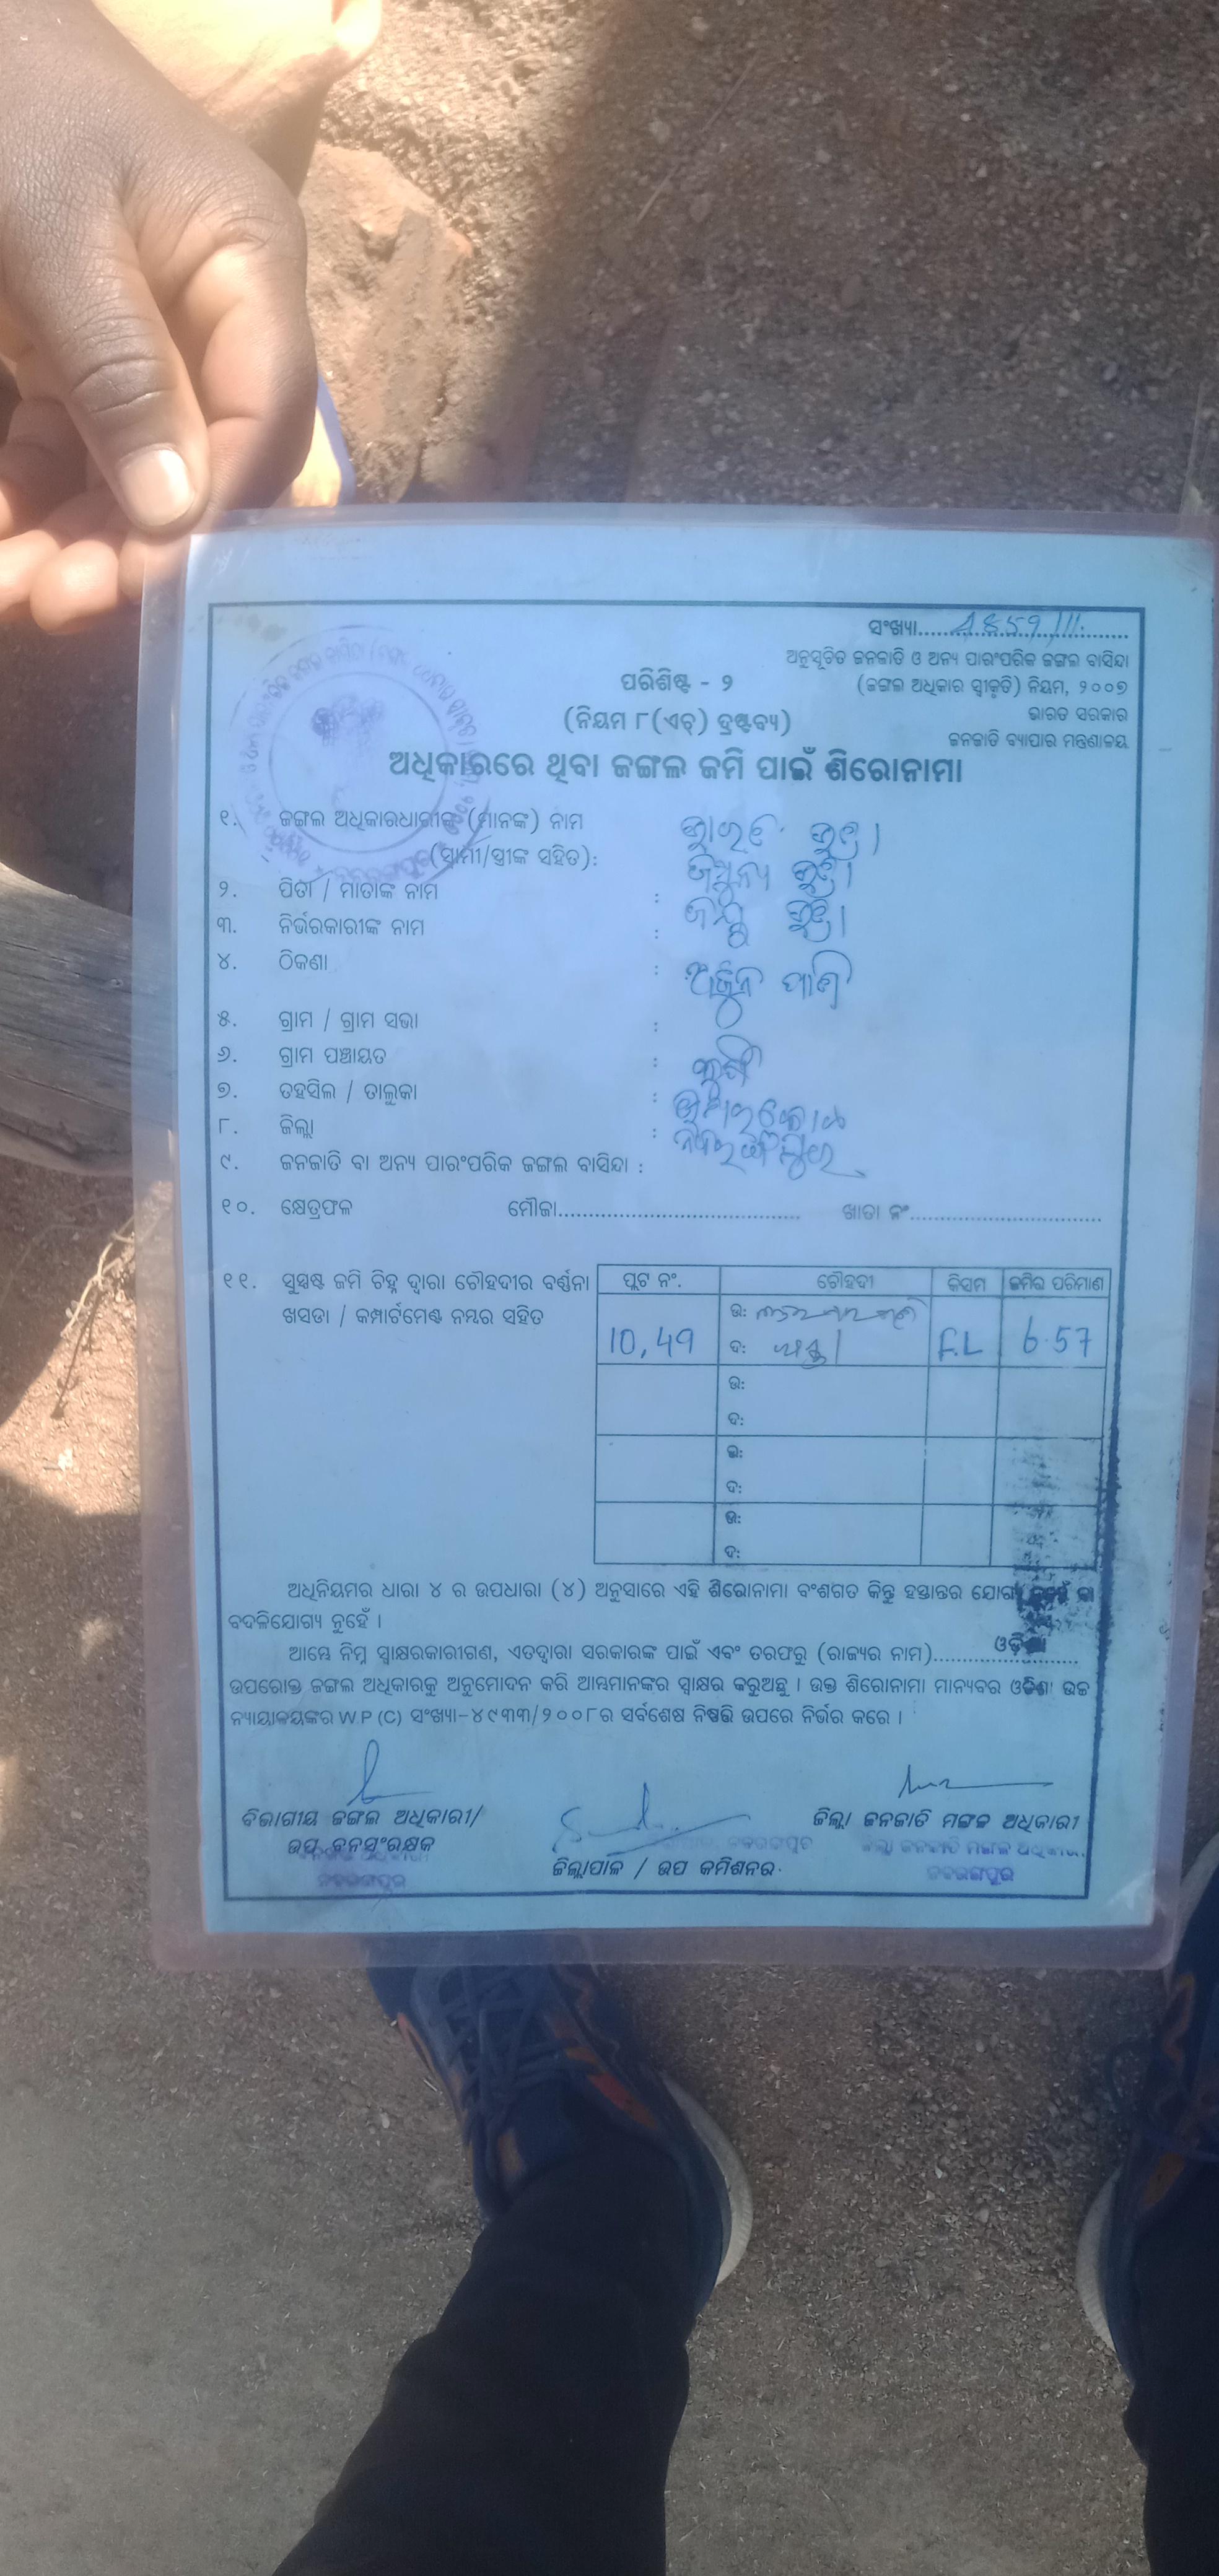 ସଂଖ୍ୟା....................
ଅନୁସୂଚିତ ଜନଜାତି ଓ ଅନ୍ୟ ପାରଂପରିକ ଜଙ୍ଗଲ ବାସିନ୍ଦା
(ଜଙ୍ଗଲ ଅଧିକାର ସ୍ୱୀକୃତି) ନିୟମ, ୨୦୦୭
ଭାରତ ସରକାର
ଜନଜାତି ବ୍ୟାପାର ମନ୍ତ୍ରଣାଳୟ
ପରିଶିଷ୍ଟ - ୨
(ନିୟମ ୮(ଏଚ୍) ଦ୍ରଷ୍ଟବ୍ୟ)
ଅଧିକାରରେ ଥିବା ଜଙ୍ଗଲ ଜମି ପାଇଁ ଶିରୋନାମା
୧. ଜଙ୍ଗଲ ଅଧିକାରଧାରୀଙ୍କ (ମାନଙ୍କ) ନାମ
(ସ୍ୱାମୀ/ସ୍ତ୍ରୀଙ୍କ ସହିତ):
୨. ପିତା / ମାତାଙ୍କ ନାମ :
୩. ନିର୍ଭରକାରୀଙ୍କ ନାମ :
୪. ଠିକଣା :
୫. ଗ୍ରାମ / ଗ୍ରାମ ସଭା :
୬. ଗ୍ରାମ ପଞ୍ଚାୟତ :
୭. ତହସିଲ / ତାଲୁକା :
୮. ଜିଲ୍ଲା :
୯. ଜନଜାତି ବା ଅନ୍ୟ ପାରଂପରିକ ଜଙ୍ଗଲ ବାସିନ୍ଦା :
୧୦. କ୍ଷେତ୍ରଫଳ ମୌଜା.................... ଖାତା ନଂ....................
୧୧. ସୁସ୍ପଷ୍ଟ ଜମି ଚିହ୍ନ ଦ୍ୱାରା ଚୌହଦୀର ବର୍ଣ୍ଣନା
ଖସଡା / କମ୍ପାର୍ଟମେଣ୍ଟ ନମ୍ବର ସହିତ
ପ୍ଲଟ ନଂ. ଚୌହଦୀ କିସମ ଜମିର ପରିମାଣ
ଉ:
10,49 ଦ: F.L 6.57
ଉ:
ଦ:
ଉ:
ଦ:
ଉ:
ଦ:
ଅଧିନିୟମର ଧାରା ୪ ର ଉପଧାରା (୪) ଅନୁସାରେ ଏହି ଶିରୋନାମା ବଂଶଗତ କିନ୍ତୁ ହସ୍ତାନ୍ତର ଯୋଗ୍ୟ ନୁହେଁ ବା
ବଦଳିଯୋଗ୍ୟ ନୁହେଁ ।
ଆମ୍ଭେ ନିମ୍ନ ସ୍ୱାକ୍ଷରକାରୀଗଣ, ଏତଦ୍ୱାରା ସରକାରଙ୍କ ପାଇଁ ଏବଂ ତରଫରୁ (ରାଜ୍ୟର ନାମ).......ଓଡ଼ିଶା.......
ଉପରୋକ୍ତ ଜଙ୍ଗଲ ଅଧିକାରକୁ ଅନୁମୋଦନ କରି ଆମ୍ଭମାନଙ୍କର ସ୍ୱାକ୍ଷର କରୁଅଛୁ । ଉକ୍ତ ଶିରୋନାମା ମାନ୍ୟବର ଓଡ଼ିଶା ଉଚ୍ଚ
ନ୍ୟାୟାଳୟଙ୍କର W.P (C) ସଂଖ୍ୟା-୪୯୩୩/୨୦୦୮ର ସର୍ବଶେଷ ନିଷ୍ପତ୍ତି ଉପରେ ନିର୍ଭର କରେ ।
ବିଭାଗୀୟ ଜଙ୍ଗଲ ଅଧିକାରୀ/
ଉପ ବନସଂରକ୍ଷକ
ନବରଙ୍ଗପୁର
ଜିଲ୍ଲାପାଳ / ଉପ କମିଶନର
ଜିଲ୍ଲା ଜନଜାତି ମଙ୍ଗଳ ଅଧିକାରୀ
ଜିଲ୍ଲା ଜନଜାତି ମଙ୍ଗଳ ଅଧିକାରୀ
ନବରଙ୍ଗପୁର